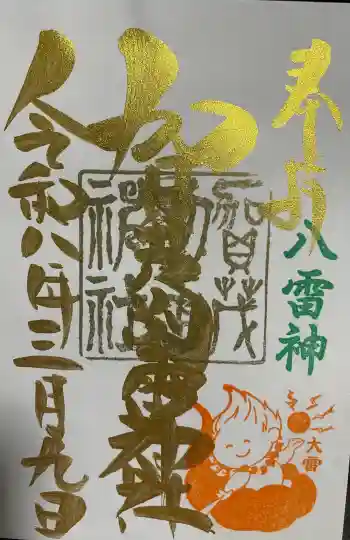 奉拝
八雷神
賀茂別雷神社
令和八年三月九日
賀茂
神社
大雷